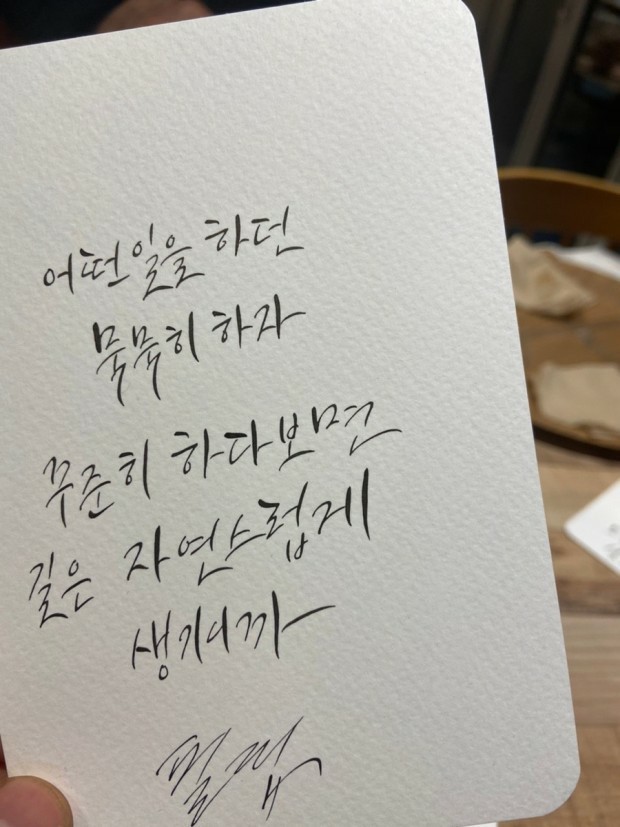 어떤일을 하던
묵묵히 하자
꾸준히 하다보면
길은 자연스럽게
생기니까